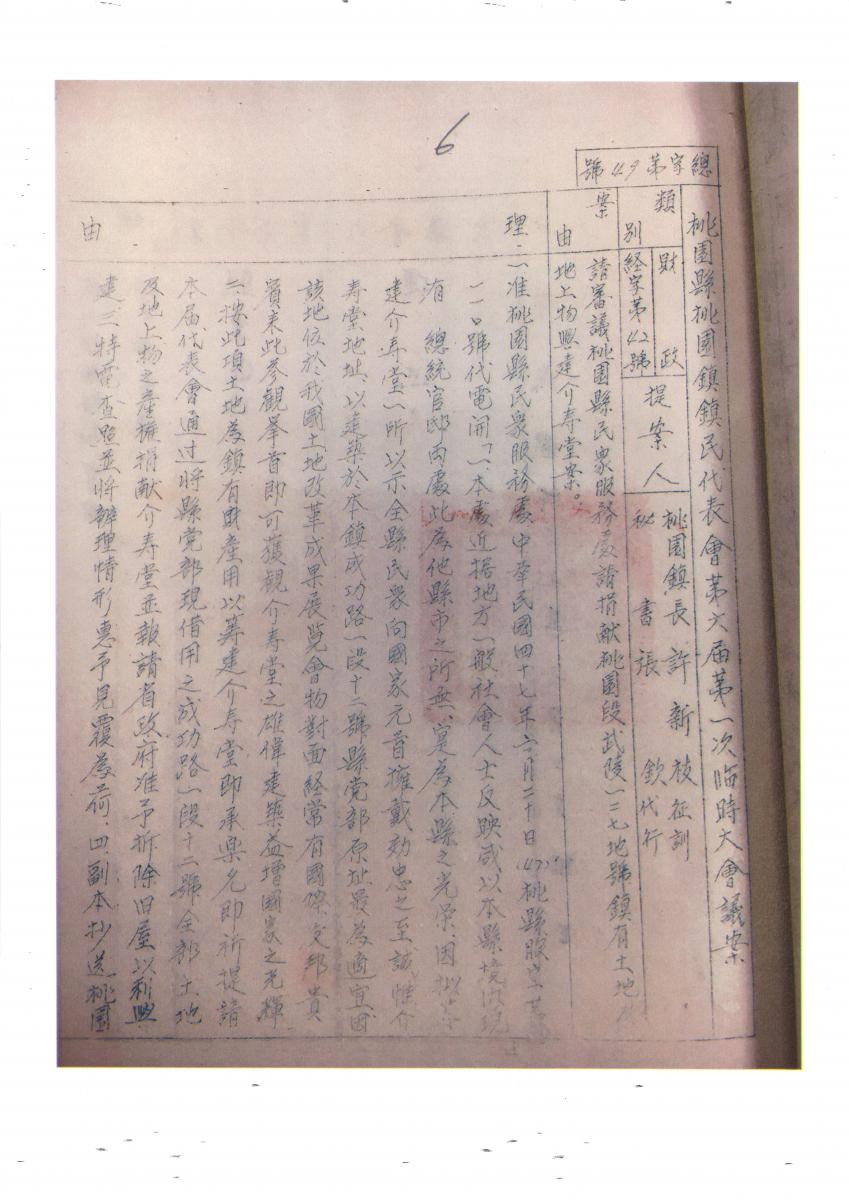 6
總字第49號
桃園縣桃園鎮鎮民代表會第六届第一次臨時大會議案
類別
財政
経字第42號
提案人
桃園鎮長許新枝征訓
秘書張欽代行
案由
請審議桃園縣民衆服務處請捐献桃園段武陵一二七地號鎮有土地
地上物興建介寿堂案。
理由
一、准桃園縣民衆服務處中華民國四十七年六月二十日(47)桃縣服
一一〇號代電開「一、本處近据地方一般社會人士反映咸以本縣境内現
有 總統官邸两處此為他縣市之所無、寔為本縣之光荣、因拟
建介寿堂一所以示全縣民衆向國家元首擁戴効忠之至誠惟介
寿堂地址、以建築於本鎮成功路一段十二號縣党部原址最為適宜因
該地位於我國土地改革成果展览會物對面経常有國際友邦貴
賓来此参觀举首即可獲観介寿堂之雄偉建築益增國家之光輝
二、按此項土地為鎮有財產用以筹建介寿堂即承樂允即祈提請
本届代表會通过將縣党部現借用之成功路一段十二號全部土地
及地上物之產權捐献介寿堂並報請省政府准予拆除旧屋以利興
建三、特電查照並將辦理情形惠予見覆為荷、四、副本抄送桃園